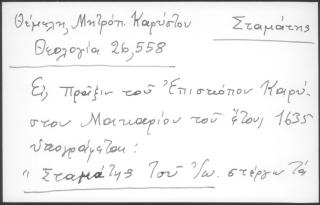 Θέμελη, Μητροπ. Καρύστου
Σταμάτης
Θεολογία 26,558
Εἰς Πρᾶξιν τοῦ Ἐπισκόπου Καρύ-
στου Μακαρίου τοῦ ἔτους 1635
ὑπογράφεται:
"Σταμάτης τοῦ Ἰω. στέργω τὰ